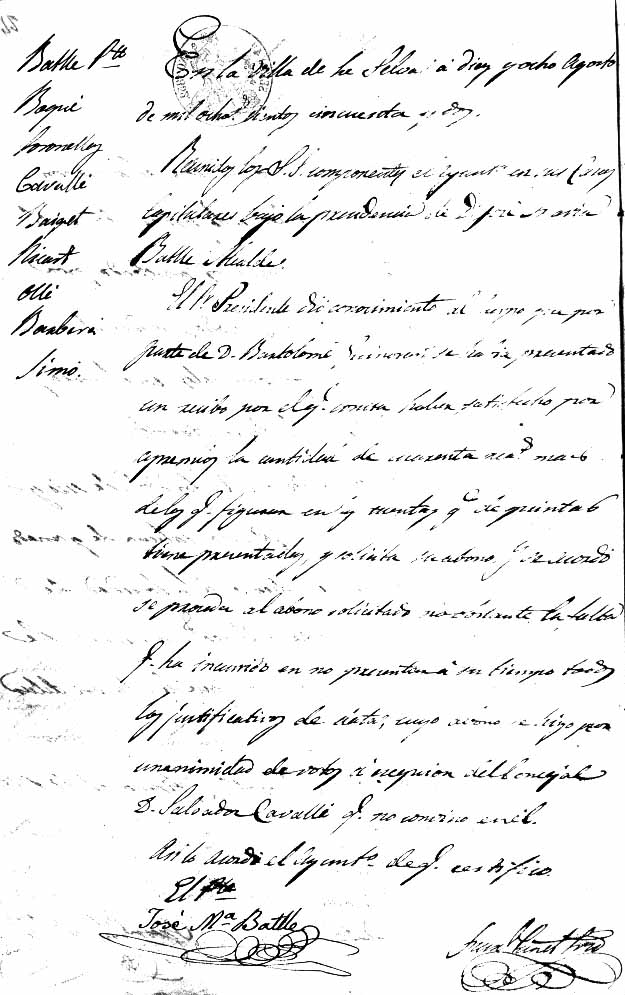 Batlle Pte
Boqué
Cavallé
Baiget
Ricart
Ollé
Barberá
Simó.
En la Villa de la Selva á diez y ocho Agosto
de mil ochocientos cincuenta y dos.
Reunidos los S.S. componentes el Ayuntº en sus Casas
Capitulares bajo la presidencia de D. José Maria
Batlle Alcalde.
El Sr Presidente dió conocimiento al mismo que por
parte de D. Bartolomé se ha presentado
un recibo por el q. consta haber satisfecho por
apremios la cantidad de cuarenta rs mas
de los q. figuran en cuentas q. de quintas
tiene presentadas, y solicita su abono. Y se acordó
se proceda al abono solicitado no obstante la falta
q. ha incurrido en no presentar á su tiempo todos
los justificativos de data; cuyo abono se hizo por
unanimidad de votos á escepcion del Concejal
D. Salvador Cavallé q. no convino en él.
Asi lo acordó el Ayuntº de q. certifico.
El Pte
José Mª Batlle